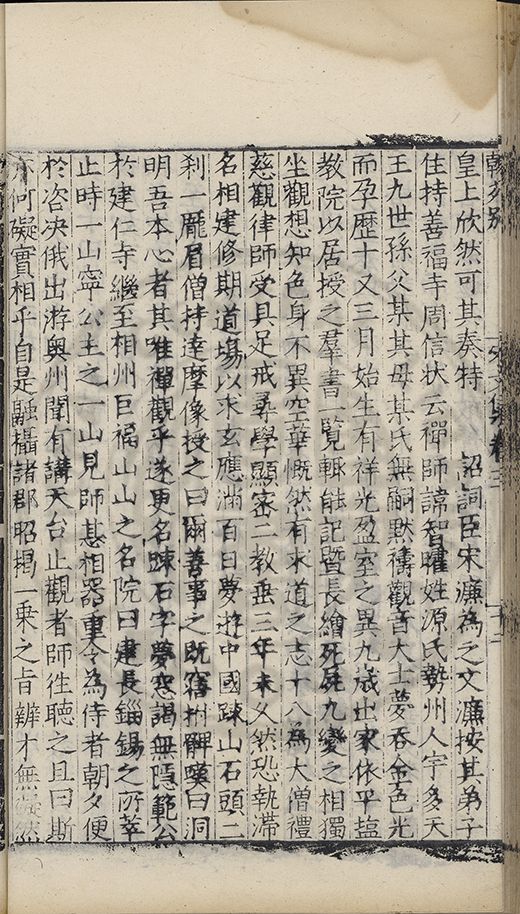 卷三
十二
皇上欣然可其奏特　詔詞臣宋濂為之文濂按其弟子
住持善福寺周信狀云禪師諱智曤姓源氏勢州人宇多天
王九世孫父某其母某氏無嗣默禱觀音大士夢吞金色光
而孕歷十又三月始生有祥光盈室之異九歲出家依平塩
教院以居授之羣書一覽輙能記暨長繪死屍九變之相獨
坐觀想知色身不異空華慨然有求道之志十八為大僧禮
慈觀律師受具足戒尋學顯密二教垂三年未久然恐執滯
名相建修期道場以求玄應滿百日夢遊中國踈山石頭二
刹一龐眉僧持達摩像授之曰爾善事之既寤拊髀嘆曰洞
明吾本心者其唯禪觀乎遂更名踈石字夢窓謁無隱範公
於建仁寺繼至相州巨福山山之名院曰建長錙錫之所萃
止時一山寧公主之一山見師甚相器重令為侍者朝夕便
於咨決俄出游奧州聞有講天台止觀者師徃聽之且曰斯
亦何礙實相乎自是融攝諸郡昭揭一乗之旨辨才無礙